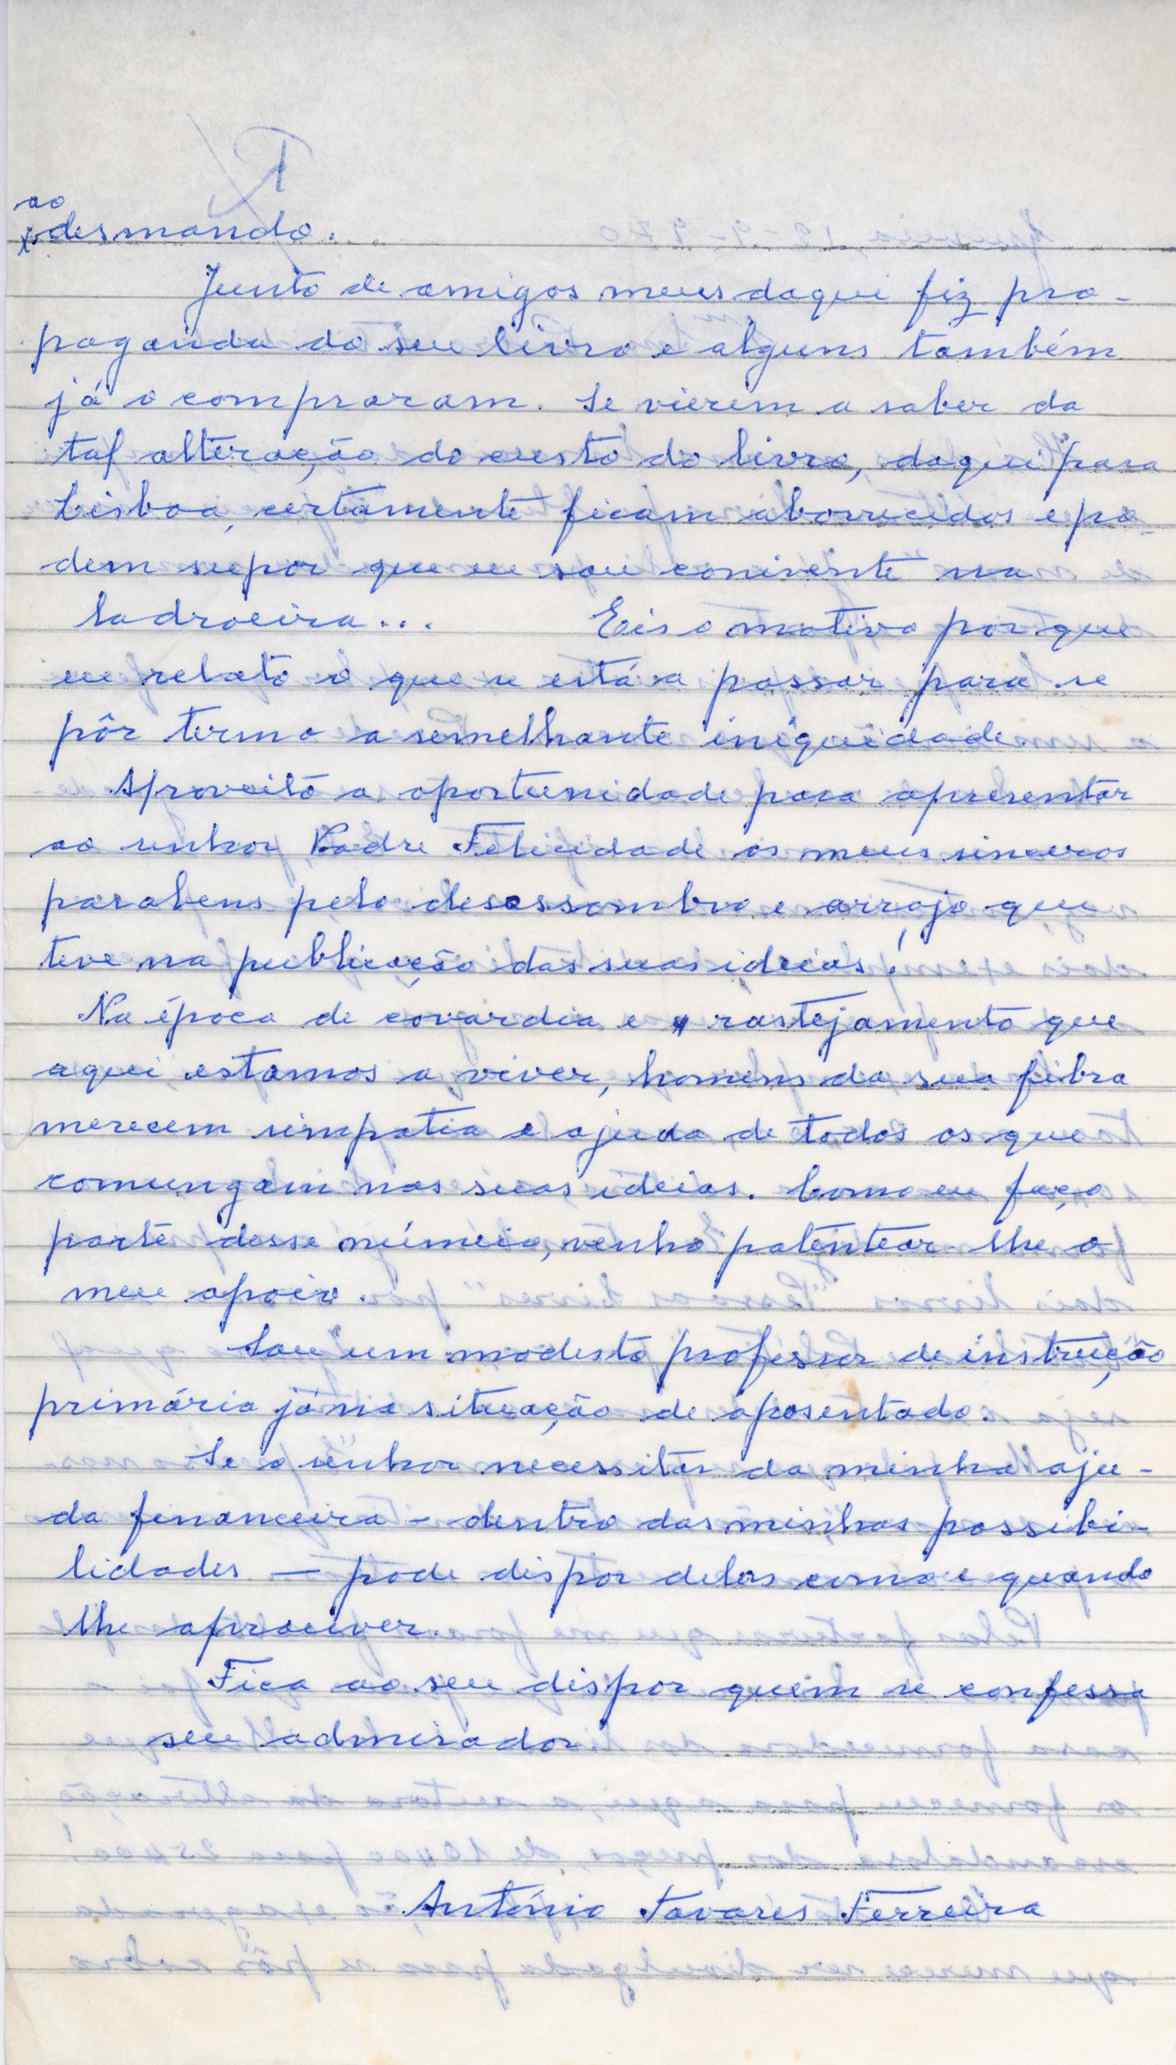 ao
desmando.
Junto de amigos meus daqui fiz pro-
paganda do seu livro e alguns também
já o compraram. Se vierem a saber da
tal alteração do custo do livro, daqui para
Lisboa, certamente ficam aborrecidos e po-
dem supor que eu sou conivente na
ladroeira... Eis o motivo por que
eu relato o que se está a passar para se
pôr termo a semelhante iniquidade.
Aproveito a oportunidade para apresentar
ao senhor Padre Felicidade os meus sinceros
parabens pelo desassombro e arrojo que
teve na publicação das suas ideias!
Na época de covardia e rastejamento que
aqui estamos a viver, homens da sua fibra
merecem simpatia e ajuda de todos os que
comungam nas suas ideias. Como eu faço
parte desse número, venho patentear-lhe o
meu apoio.
Sou um modesto professor de instrução
primária já na situação de aposentado.
Se o senhor necessitar da minha aju-
da financeira - dentro das minhas possibi-
lidades - pode dispor delas como e quando
lhe aprouver.
Fica ao seu dispor quem se confessa
seu admirador
António Tavares Ferreira